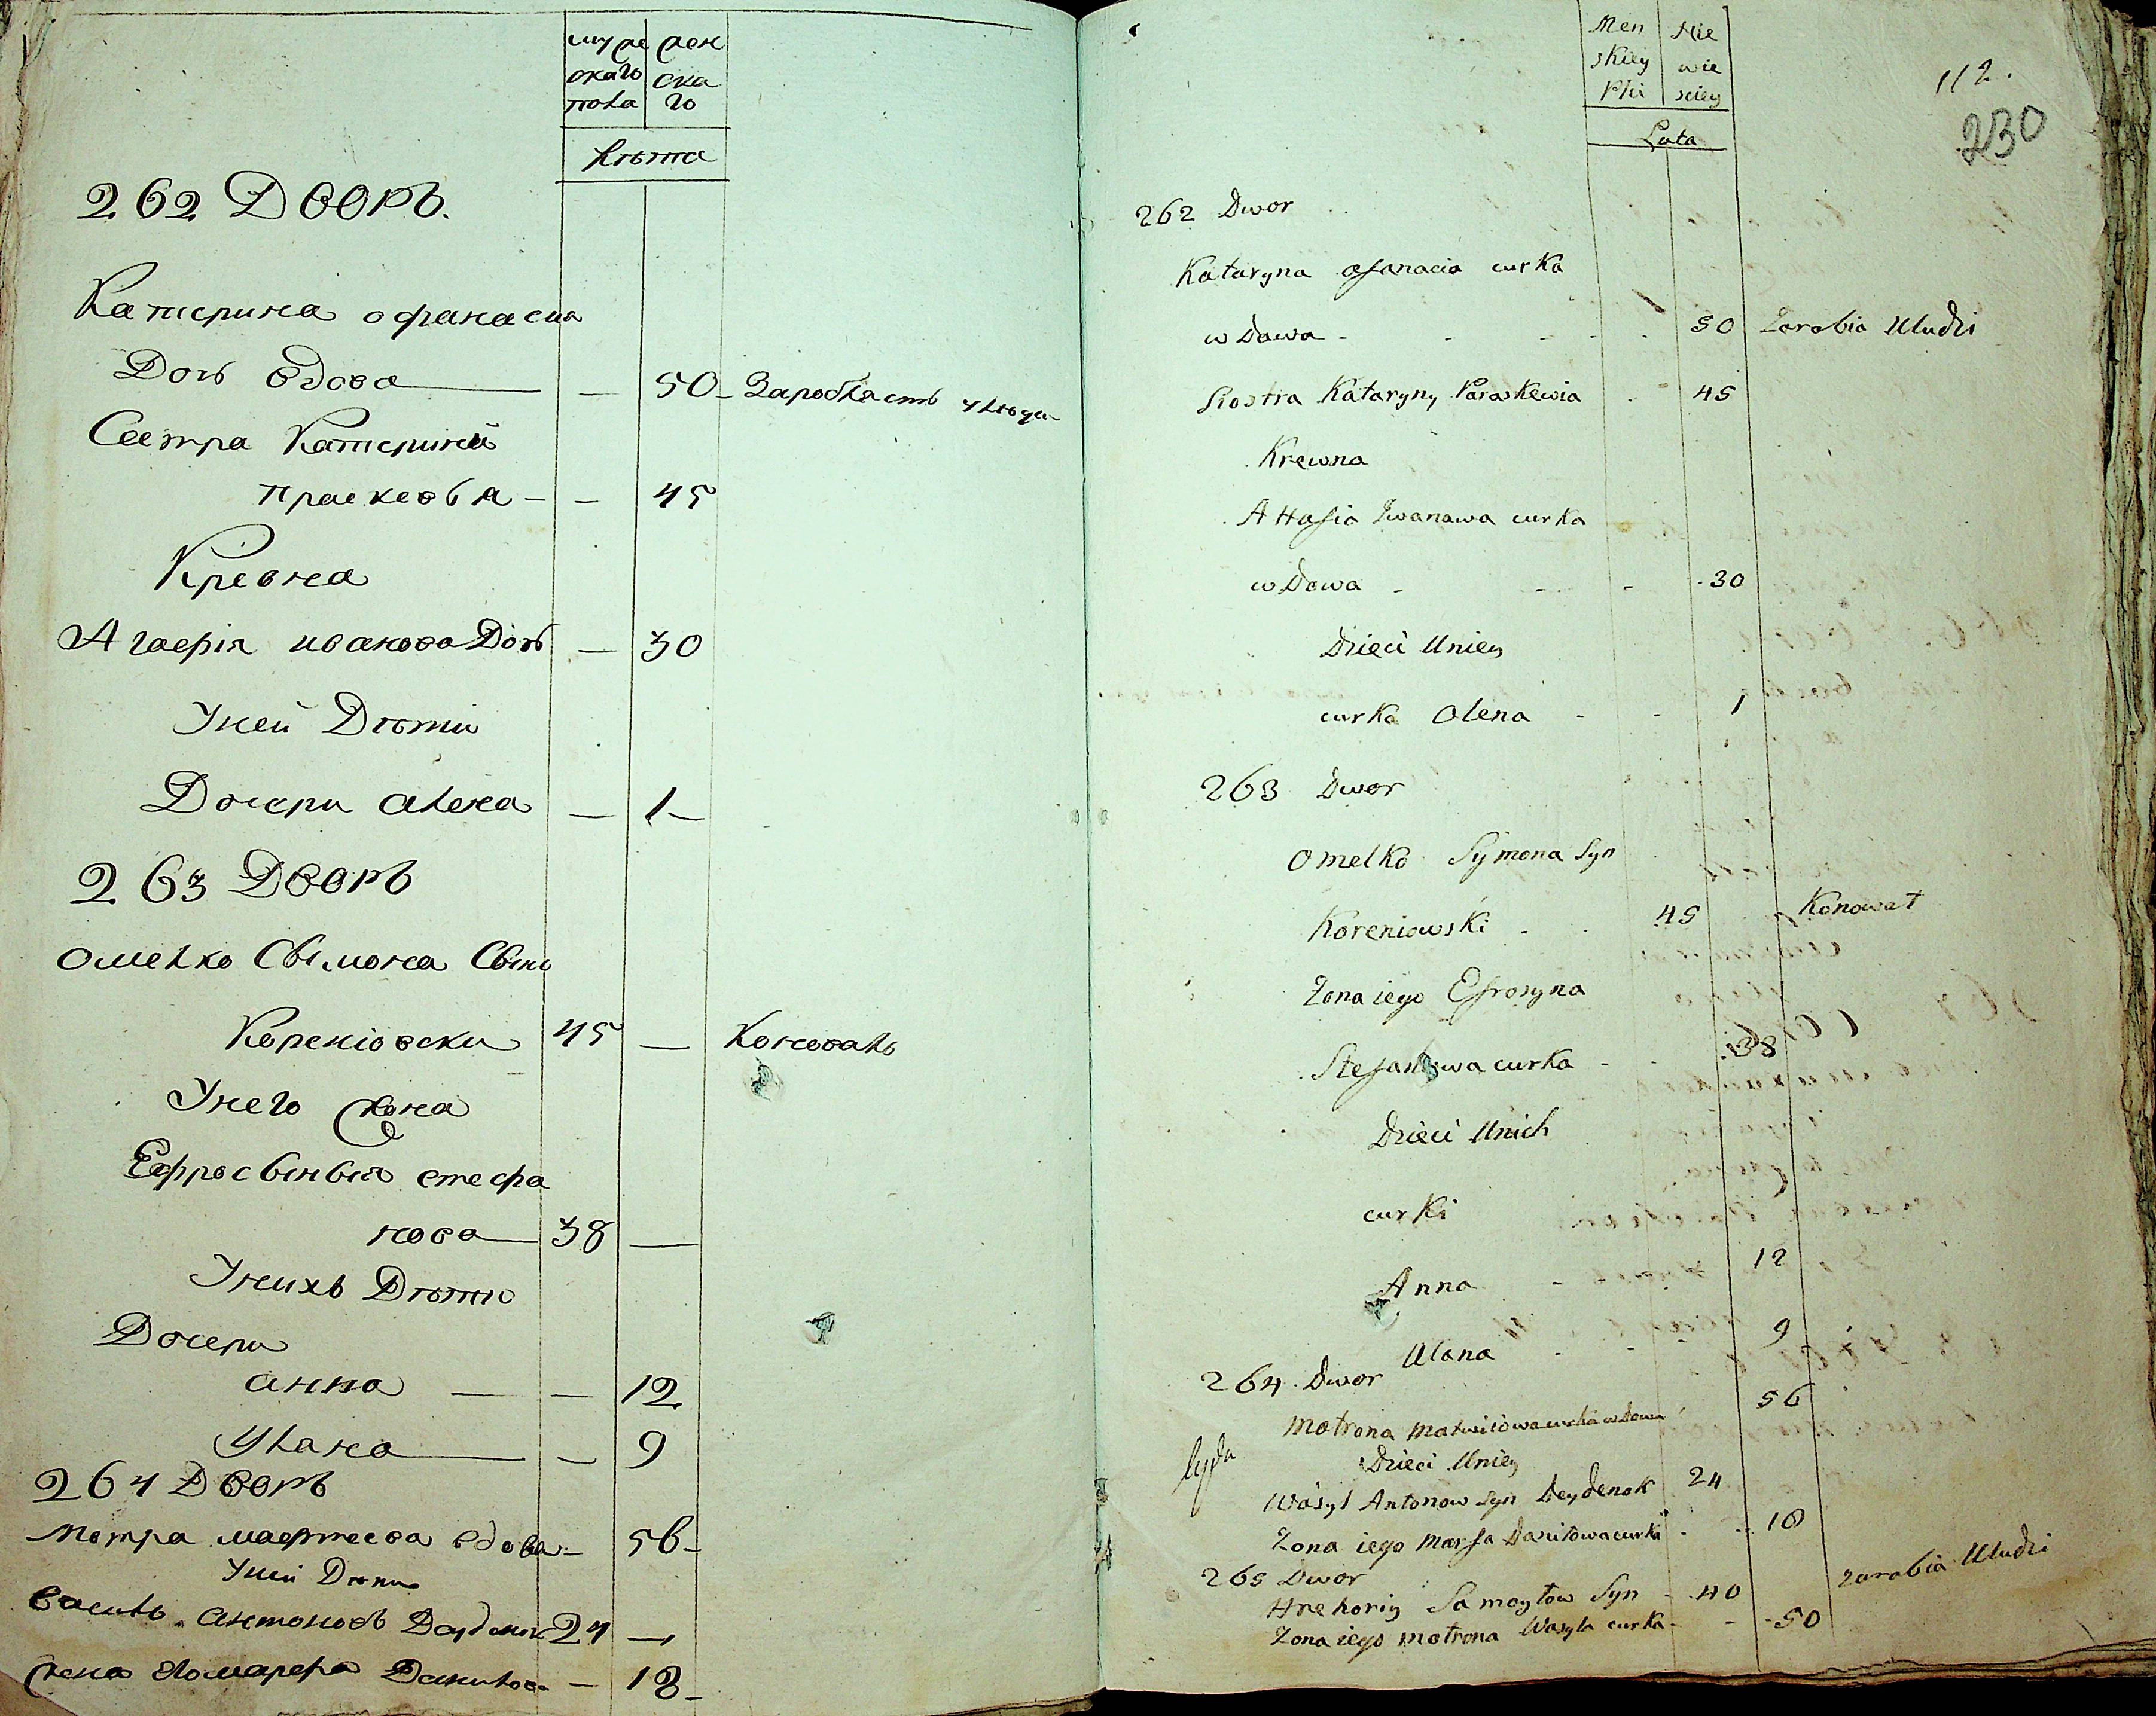 муже жен
скаго ска
пола го
лѣта
262 Дворъ.
Катерина офанасия
Дочь вдова — — 50 - Заробляеть улюдеи
Сестра Катерины
праскевья - - 45
Кревна
Агафія иванова Дочь — 30
Уней Дѣти
Дочери алена — 1 -
263 Дворъ
Омелко Сымона Сынъ
Корениовски 45 — Коновалъ
Унего Жона
Ефросыныя стефа
нова — 38 —
Унихъ Дѣти
Дочери
анна — — 12
Улана — — 9
264 Дворъ
Мотра матвеева вдова - 56 -
Уней Дѣти
Василь антоновъ Дейденок 24 —
жена его марфа Данилова — 18 -
Men Nie
skiey wie
Płci sciey
Lata
112.
230
262 Dwor
Kataryna afanacia curka
wDowa - - - - 50 Zarabia Uludzi
Siostra Kataryny Paraskewia - 45
Krewna
AHafia Iwanawa curka
wDowa - - - 30
Dzieci Uniey
curka Olena - - 1
263 Dwor
Omelko Symona Syn
Koreniawski - - 45 Konował
Zona iego Efrosyna
Stefanowa curka - - 38
Dzieci Unich
curki
Anna - 12
Ulana - - 9
264 Dwor
Matrona Matwiiowa curka wdowa 56
Dzieci Uniey
Wasyl Antonow syn Deydenok 24
Zona iego Marfa Daniłowa curka - - 18
265 Dwor
Hrehoriy Samoyłow Syn - 40 zarabia Uludzi
Zona iego Matrona Wasyla curka - - 50